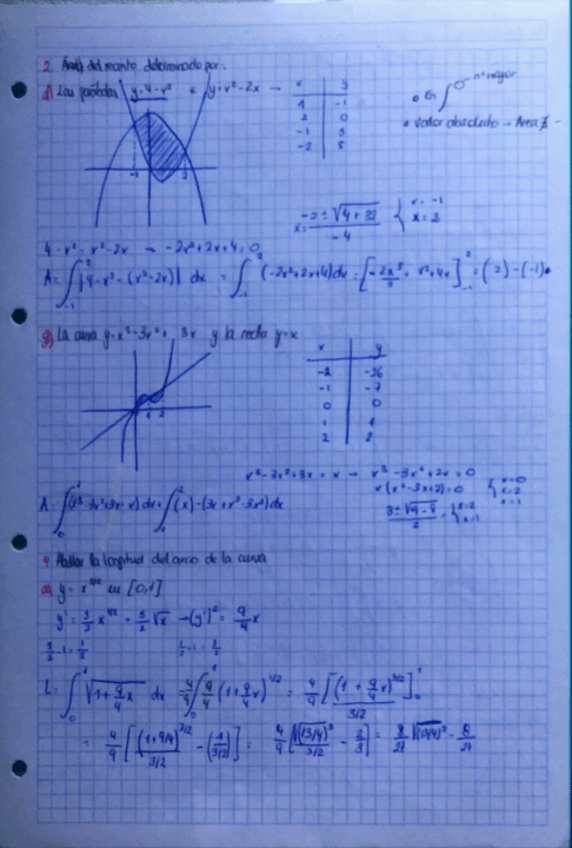 2. Área del recinto determinado por:
d) Las parábolas y=4-x² e y=x²-2x →
x y
1 -1
2 0
-1 3
-2 8
• En ∫ nº mayor
• Valor absoluto → Área
-1 2
x= -2±√(4+32) / -4 { x=-1
x=2
4-x²=x²-2x → -2x²+2x+4=0
A=∫₋₁² |4-x²-(x²-2x)| dx = ∫₋₁² (-2x²+2x+4)dx = [-2x³/3 + x²+4x]₋₁² = (2)-(-1)
g) La curva y=x³-3x²+3x y la recta y=x
x y
-2 -26
-1 -7
0 0
1 1
2 2
1 2
x³-3x²+3x=x → x³-3x²+2x=0
x(x²-3x+2)=0 { x=0
x=2
x=1
3±√(9-8) / 2 = { x=2
x=1
A ∫₀¹ (x³-3x²+3x-x)dx + ∫₁² (x)-(3x+x³-3x²)dx
4 Hallar la longitud del arco de la curva
a) y=x^(3/2) en [0,1]
y'=3/2 x^(1/2) = 3/2 √x → (y')²= 9/4 x
3/2-1=1/2
1/2+1=3/2
L=∫₀¹ √(1+9/4 x) dx = 4/9 ∫₀¹ 9/4 (1+9/4 x)^(1/2) = 4/9 [(1+9/4 x)^(3/2) / 3/2]₀¹
= 4/9 [(1+9/4)^(3/2) / 3/2 - (1 / 3/2)] = 4/9 [√(13/4)³ / 3/2 - 2/3] = 8/27 √(13/4)³ - 8/27